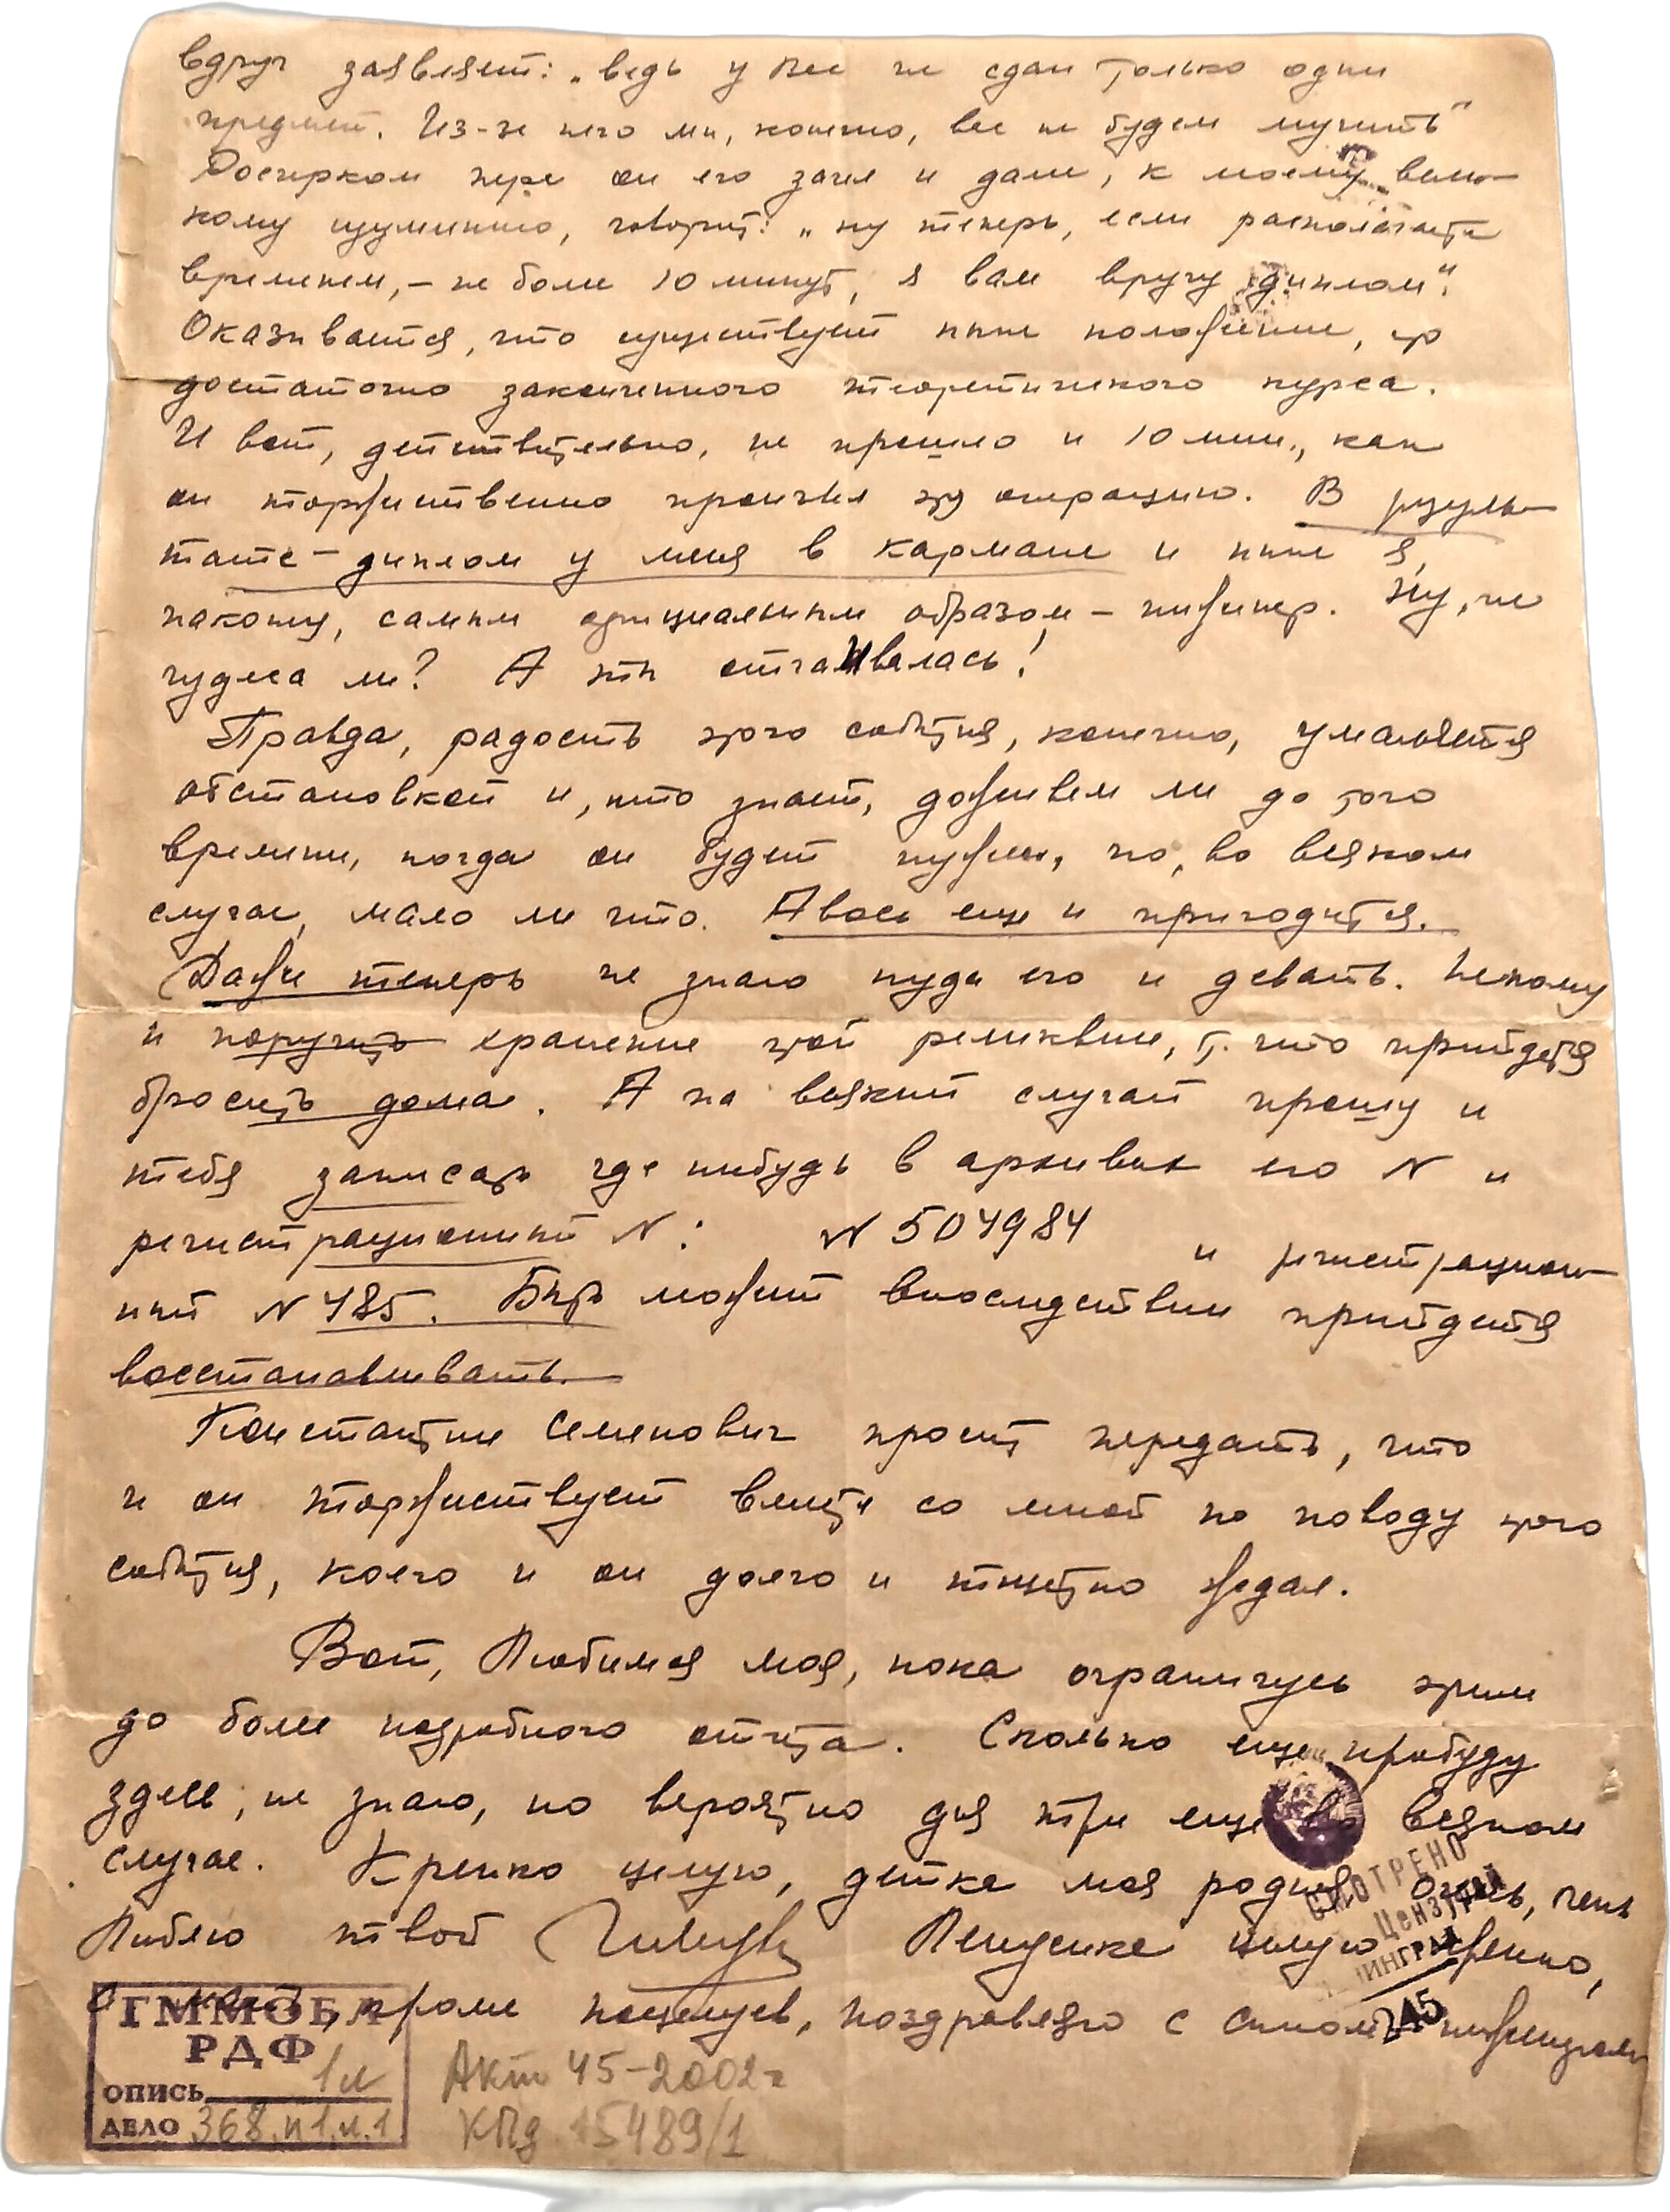 вдруг заявляет: „ведь у Вас не сдан только один
предмет. Из-за него мы, конечно, вас не будем мучить"
Росчерком пера он его зачел и далее, к моему вели-
кому изумлению, говорит: „ну теперь, если располагаете
временем, – не более 10 минут, я вам вручу диплом".
Оказывается, что существует ныне положение, что
достаточно законченного теоретического курса.
И вот, действительно, не прошло и 10 мин., как
он торжественно произвел эту операцию. В резуль-
тате – диплом у меня в кармане и ныне я,
наконец, самым официальным образом – инженер. Ну, не
чудеса ли? А ты отчаивалась!
Правда, радость этого события, конечно, умаляется
обстановкой и, кто знает, доживем ли до того
времени, когда он будет нужен, но, во всяком
случае, мало ли что. Авось еще и пригодится.
Даже теперь не знаю куда его и девать. Некому
и поручить хранение этой реликвии, т. что прийдется
бросить дома. А на всякий случай прошу и
тебя записать где нибудь в архивах его N и
регистрационный N: N 504984 и регистрацион-
ный N 485. Быть может впоследствии прийдется
восстанавливать.
Константин Семенович просит передать, что
и он торжествует вместе со мной по поводу этого
события, коего и он долго и тщетно ждал.
Вот, Любимая моя, пока ограничусь этим
до более подробного отчета. Сколько еще пробуду
здесь, не знаю, но вероятно дня три еще во всяком
случае. Крепко целую, детка моя родная. Очень, очень
Люблю твой
Ленусеньке целую крепко,
кроме поцелуев, поздравляю с сыном инженером
СМОТРЕНО
Цензурой
ИНГРАД
245
ГММОБЛ
РДФ
ОПИСЬ 1л
ДЕЛО 368.п1.л.1
Акт 45-2002г
КПд 15489/1